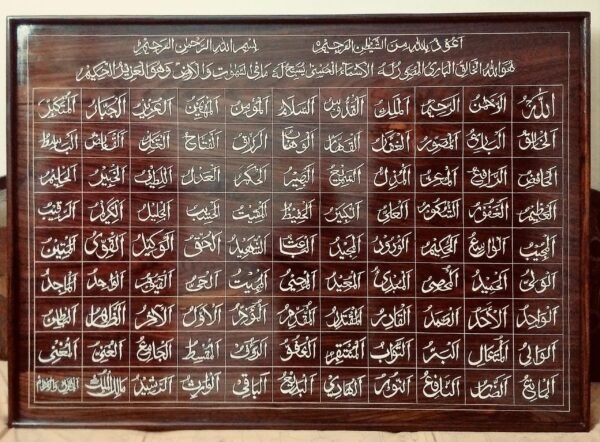 اعوذ بالله من الشيطن الرجيم بسم الله الرحمن الرحيم
هو الله الخالق البارئ المصور له الاسماء الحسنى يسبح له ما في السموت والارض وهو العزيز الحكيم
الله الرحمن الرحيم الملك القدوس السلام المؤمن المهيمن العزيز الجبار المتكبر
الخالق البارئ المصور الغفار القهار الوهاب الرزاق الفتاح العليم القابض الباسط
الخافض الرافع المعز المذل السميع البصير الحكم العدل اللطيف الخبير الحليم
العظيم الغفور الشكور العلي الكبير الحفيظ المقيت الحسيب الجليل الكريم الرقيب
المجيب الواسع الحكيم الودود المجيد الباعث الشهيد الحق الوكيل القوي المتين
الولي الحميد المحصي المبدئ المعيد المحيي المميت الحي القيوم الواجد الماجد
الواحد الاحد الصمد القادر المقتدر المقدم المؤخر الاول الآخر الظاهر الباطن
الوالي المتعال البر التواب المنتقم العفو الرؤف المقسط الجامع الغني المغني
المانع الضار النافع النور الهادي البديع الباقي الوارث الرشيد مالك الملك